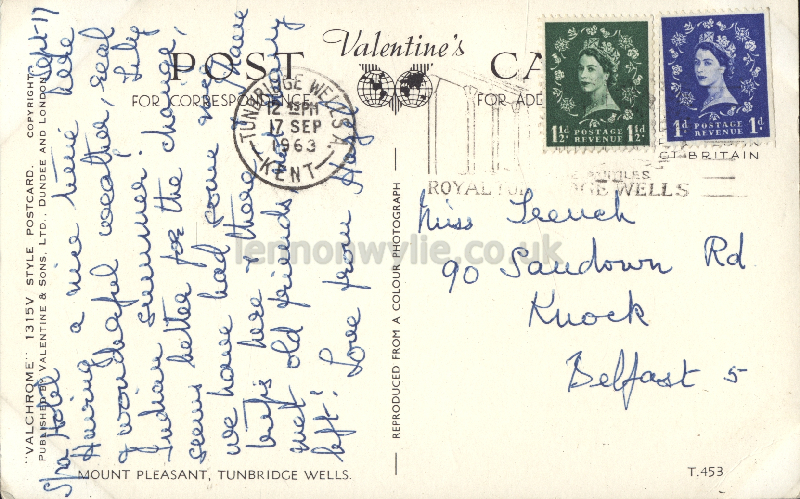 POST CA
Valentine's
FOR CORRESPONDENCE
FOR ADD
TUNBRIDGE WELLS
12 PM
17 SEP
1963
KENT
1½d POSTAGE REVENUE 1½d
1d POSTAGE REVENUE 1d
T BRITAIN
ROYAL TU DGE WELLS
"VALCHROME" 1315V STYLE POSTCARD. COPYRIGHT
PUBLISHED BY VALENTINE & SONS, LTD., DUNDEE AND LONDON
Spa Hotel Sept 17
Having a nice time here
& wonderful weather, real
Indian summer! Lily
seems better for the change,
we have had some
trips here & there have
met old friends not many
left! Love from May
REPRODUCED FROM A COLOUR PHOTOGRAPH
Miss French
90 Sandown Rd
Knock
Belfast 5
lennonwylie.co.uk
MOUNT PLEASANT, TUNBRIDGE WELLS.
T.453